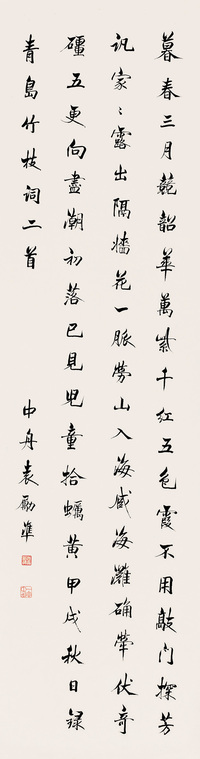 暮春三月競韶華萬紫千紅五色霞不用敲門探芳
訊家〻露出隔墻花一脈勞山入海威海灘确犖伏奇
礓五更向盡潮初落已見兒童拾蠣黃甲戌秋日錄
青島竹枝詞二首
中舟袁勵準